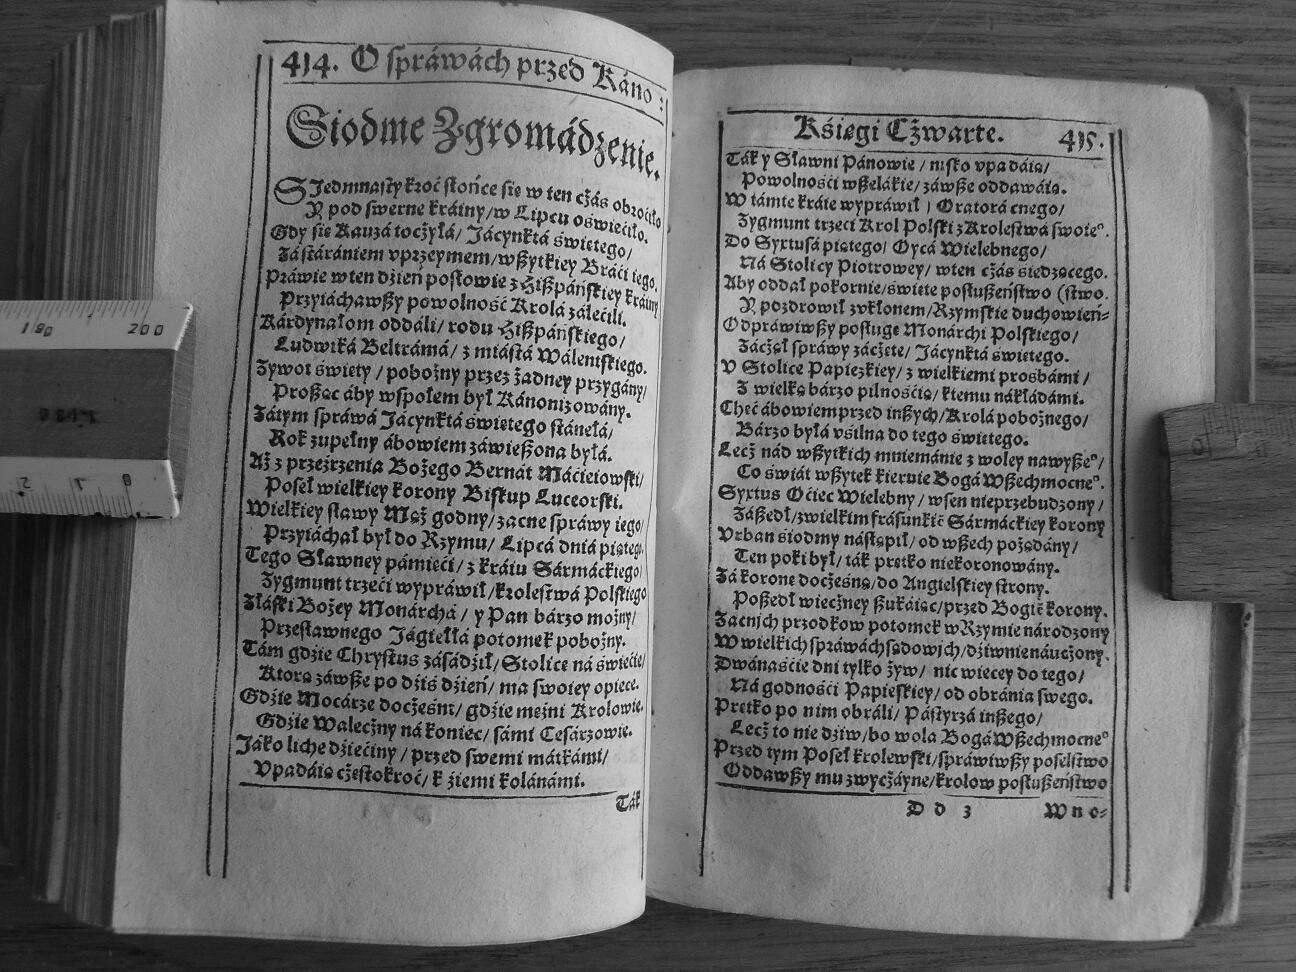 414. O ſpráwách przed Káno:
Siodme Zgromádzenie.
SJedmnaſty kroć ſłońce ſie w ten cżás obroćiło
Y pod ſwerne kráiny/ w Lipcu oświećiło.
Gdy ſie Kauzá tocżyłá/ Jácynktá świetego/
Zá ſtárániem vprzeymem/ wßytkiey Bráći iego.
Práwie w ten dźień poſłowie z Hißpáńſkiey kráiny
Przyiáchawßy powolność Krolá zálećili.
Kárdynałom oddáli/ rodu Hißpáńſkiego/
Ludwiká Beltrámá/ z miáſtá Wálentſkiego.
Zywot świety/ pobożny przez żadney przygány/
Proßąc áby wſpołem był Kánonizowány.
Zátym ſpráwá Jácynktá świetego ſtánełá/
Rok zupełny ábowiem záwießona byłá.
Aż z przeźrzenia Bożego Bernat Máćieiowſki/
Poſeł wielkiey korony Biſkup Luceorſki.
Wielkiey ſławy Mąż godny/ zacne ſpráwy iego/
Przyiáchał był do Rzymu/ Lipcá dniá piątego
Tego Sławney pámieći/ z kráiu Sármáckiego
Zygmunt trzeći wypráwił/ kroleſtwá Polſkiego
Złáſki Bożey Monárchá/ y Pan bárzo możny/
Przeſławnego Jágiełłá potomek pobożny.
Tám gdźie Chryſtus zásádźił/ Stolice ná świećie/
Ktorą záwße po dźiś dźień/ ma ſwoiey opiece.
Gdźie Mocárze docżeśni/ gdźie meżni Krolowie.
Gdźie Walecżny ná koniec/ ſámi Ceſárzowie.
Jáko liche dźiećiny/ przed ſwemi mátkámi/
Vpadáią cżeſtokroć/ k źiemi kolánámi.
Ták
Kśięgi Cżwarte. 415.
Ták y Sławni Pánowie/ niſko vpadáią/
Powolnośći wßelákie/ záwße oddawáią.
W támte kráie wypráwił/ Oratorá cnego/
Zygmunt trzeći Krol Polſki z Kroleſtwá ſwoieº.
Do Syxtuſá piątego/ Oycá Wielebnego/
Ná Stolicy Piotrowey/ w ten cżás śiedzącego.
Aby oddał pokornie/ świete poſłußeńſtwo (ſtwo.
Y pozdrowił zwkłonem/ Rzymſkie duchowień-
Odpráwiwßy poſługe Monárchi Polſkiego/
Zácżął ſpráwy zácżete/ Jácynktá świetego.
V Stolice Papieżkiey/ z wielkiemi prośbámi/
Z wielką bárzo pilnośćią/ ktemu nákłádámi.
Cheć ábowiem przed inßych/ Krolá pobożnego/
Bárzo byłá vśilna do tego świetego.
Lecż nád wßytkich mniemánie z woley nawyßeº/
Co świát wßytek kieruie Bogá Wßechmocneº.
Syxtus Oćiec Wielebny/ wſen nieprzebudzony/
Záßedł/ z wielkim fráſunkiẽ Sármáckiey korony
Vrban śiodmy náſtąpił/ od wßech pożądány/
Ten poki był/ ták pretko niekoronowány.
Zá korone docżeſną/ do Angielſkiey ſtrony.
Poßedł wiecżney ßukáiąc/ przed Bogiẽ korony.
Zacnjch przodkow potomek w Rzymie národzony
W wielkich ſpráwách ſądowjch/ dźiwnie náucżony.
Dwánaśćie dni tylko żyw/ nic wiecey do tego/
Ná godnośći Papieſkiey/ od obránia ſwego.
Pretko po nim obráli/ Páſtyrzá inßego/
Lecż to nie dźiw/ bo wola Bogá Wßechmocneº
Przed tym Poſeł krolewſki/ ſpráwiwßy poſelſtwo
Oddawßy mu zwycżáyne/ krolow poſłußeńſtwo
D d 3 Wno-
190 200
2 1 0